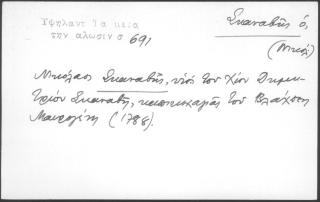 Υψηλαντ Τα μετα
την αλωσιν σ 691
Σκαναβῆς ὁ,
(Νικολ)
Νικόλαος Σκαναβῆς, υἱός τοῦ Χίου Δημη-
τρίου Σκαναβῆ, καπικεχαγιᾶς τοῦ Βλάχμπεη
Μαυρογένη (1788).